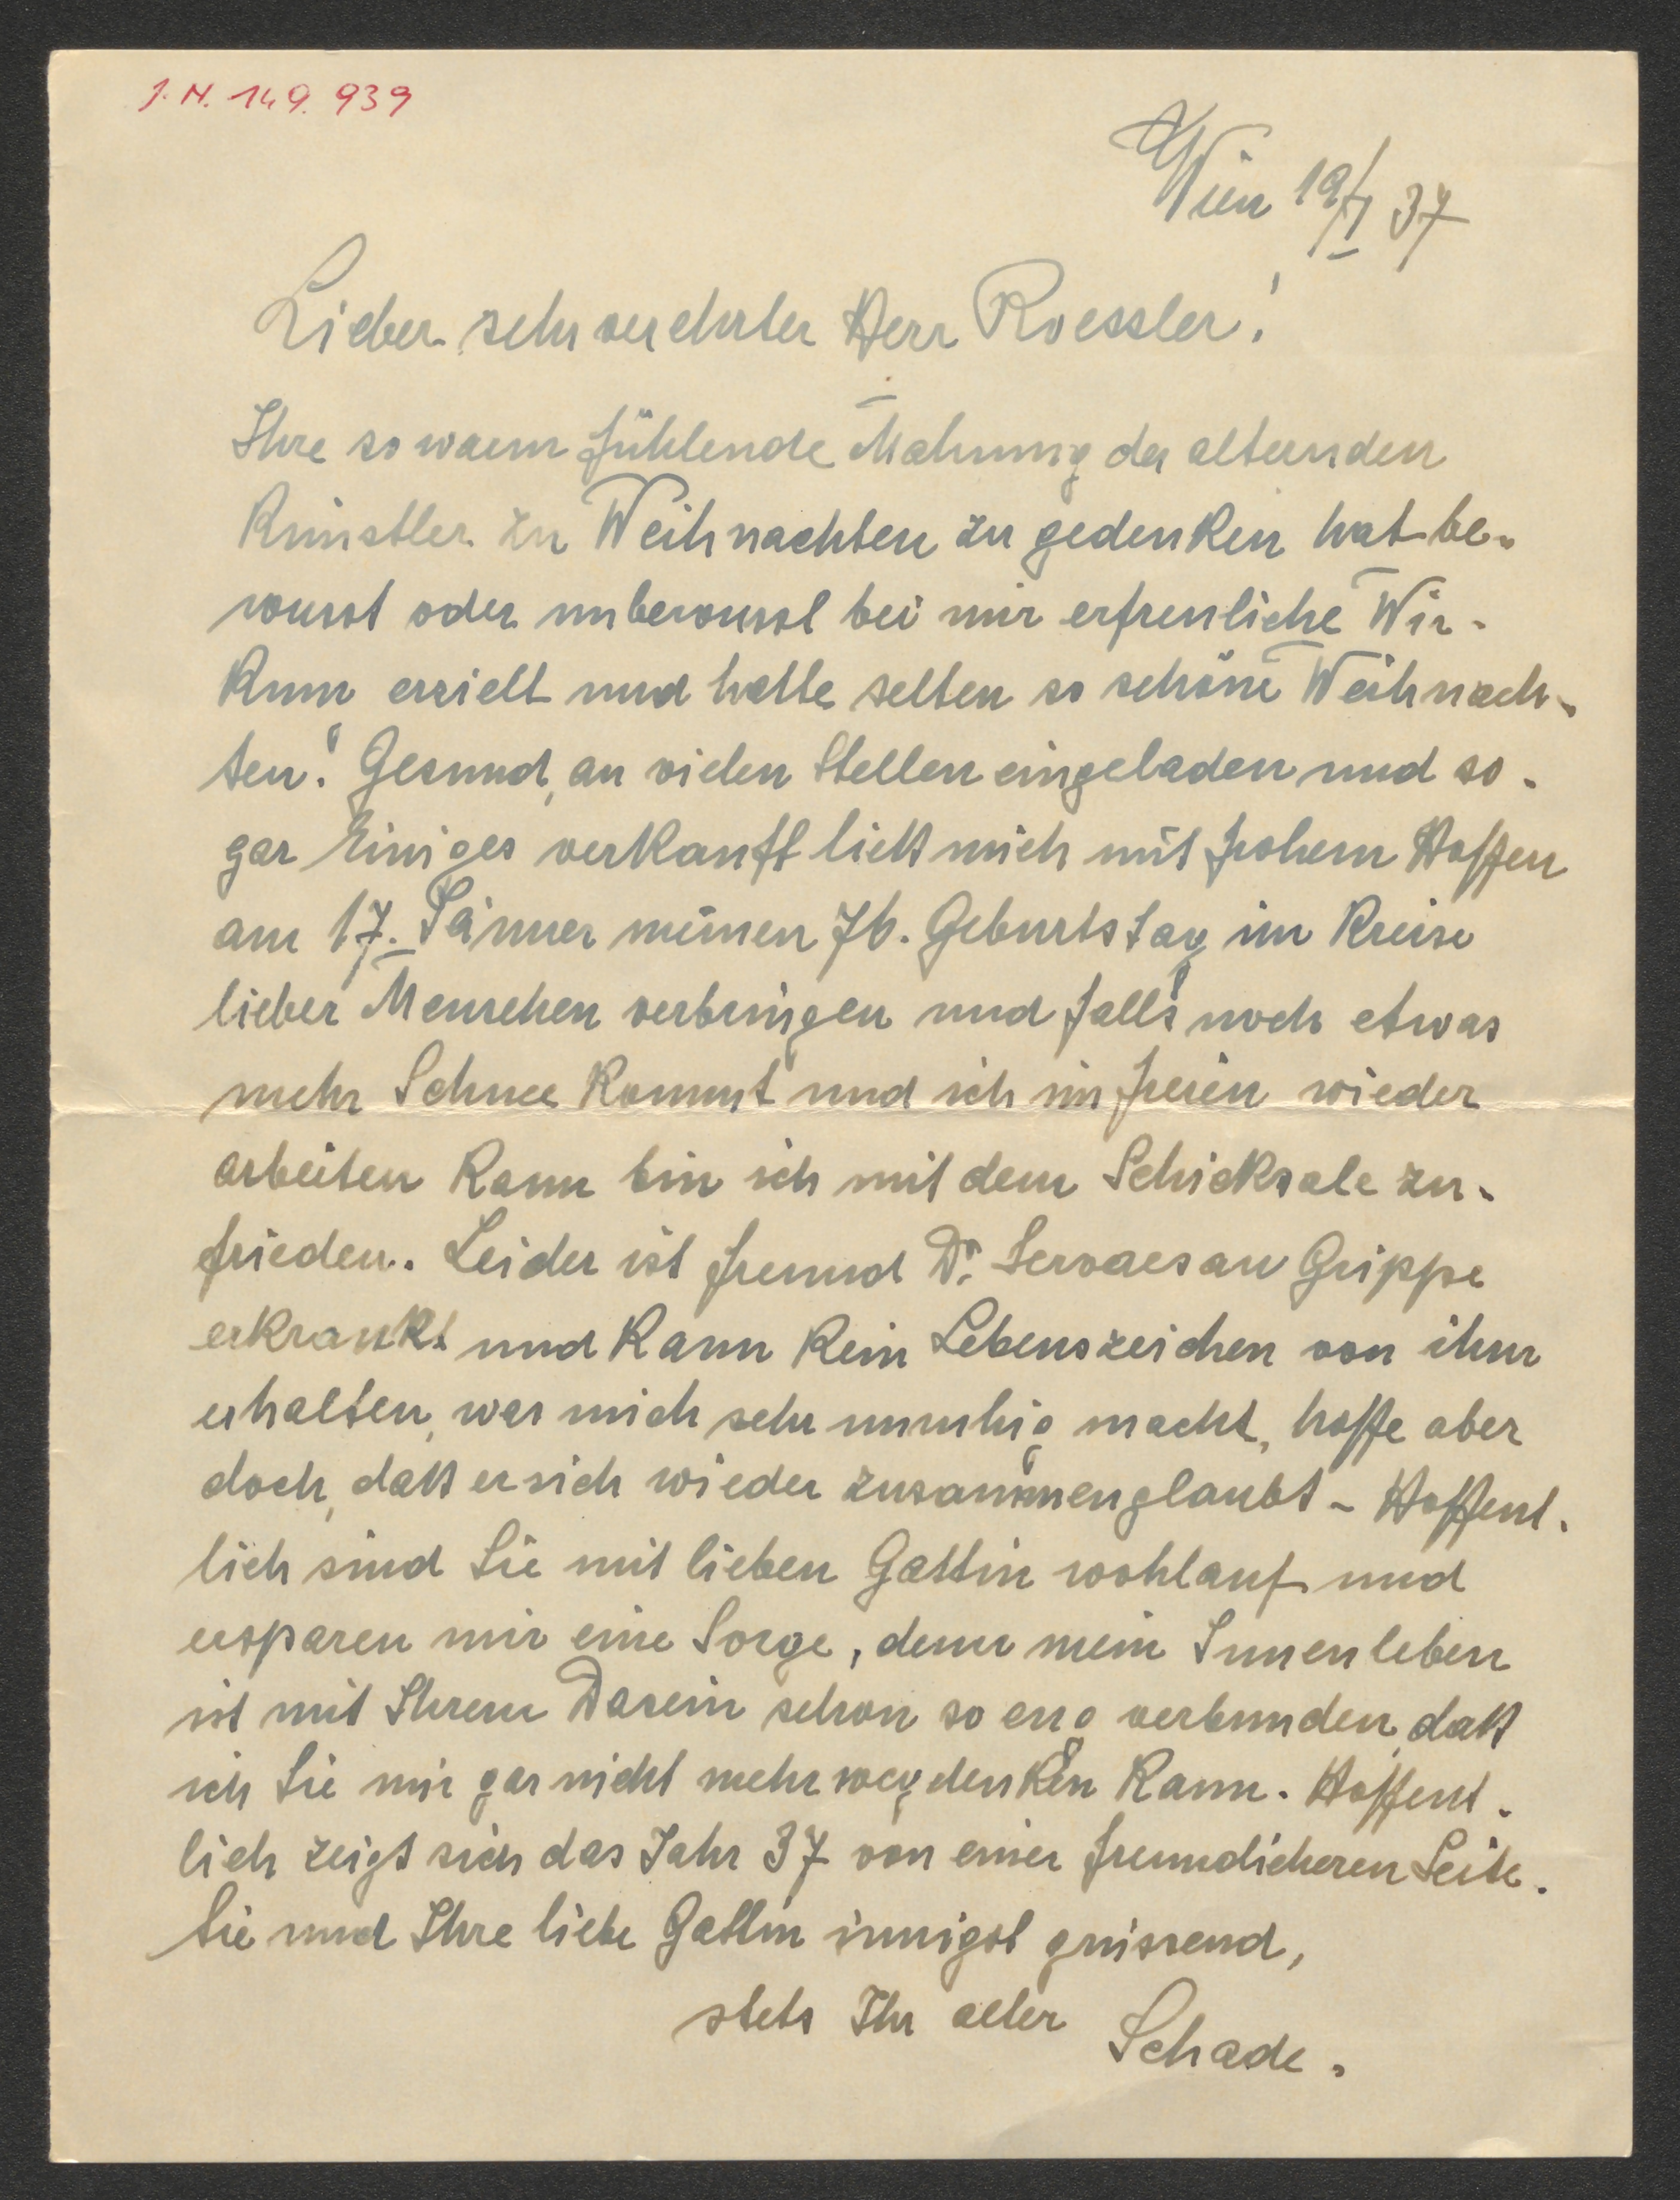 J. N. 149.939
Wien 19/I 37
Lieber sehr verehrter Herr Roessler!
Ihre so warm fühlende Mahnung der alternden
Künstler zu Weihnachten zu gedenken hat be-
wusst oder unbewusst bei mir erfreuliche Wir-
kung erzielt und hatte selten so schöne Weihnach-
ten! Gesund, an vielen Stellen eingeladen und so-
gar Einiges verkauft ließ mich mit frohem Hoffen
am 17. Jänner meinen 76. Geburtstag im Kreise
lieber Menschen verbringen und falls noch etwas
mehr Schnee kommt und ich im freien wieder
arbeiten kann bin ich mit dem Schicksale zu-
frieden. Leider ist Freund Dr. Servaes an Grippe
erkrankt und kann kein Lebenszeichen von ihm
erhalten, was mich sehr unruhig macht, hoffe aber
doch, daß er sich wieder zusammenglaubt - Hoffent-
lich sind Sie mit lieben Gattin wohlauf und
ersparen mir eine Sorge, denn mein Innenleben
ist mit Ihrem Dasein schon so eng verbunden, daß
ich Sie mir gar nicht mehr wegdenken kann. Hoffent-
lich zeigt sich das Jahr 37 von einer freundlicheren Seite.
Sie und Ihre liebe Gattin innigst grüssend,
stets Ihr alter Schade.